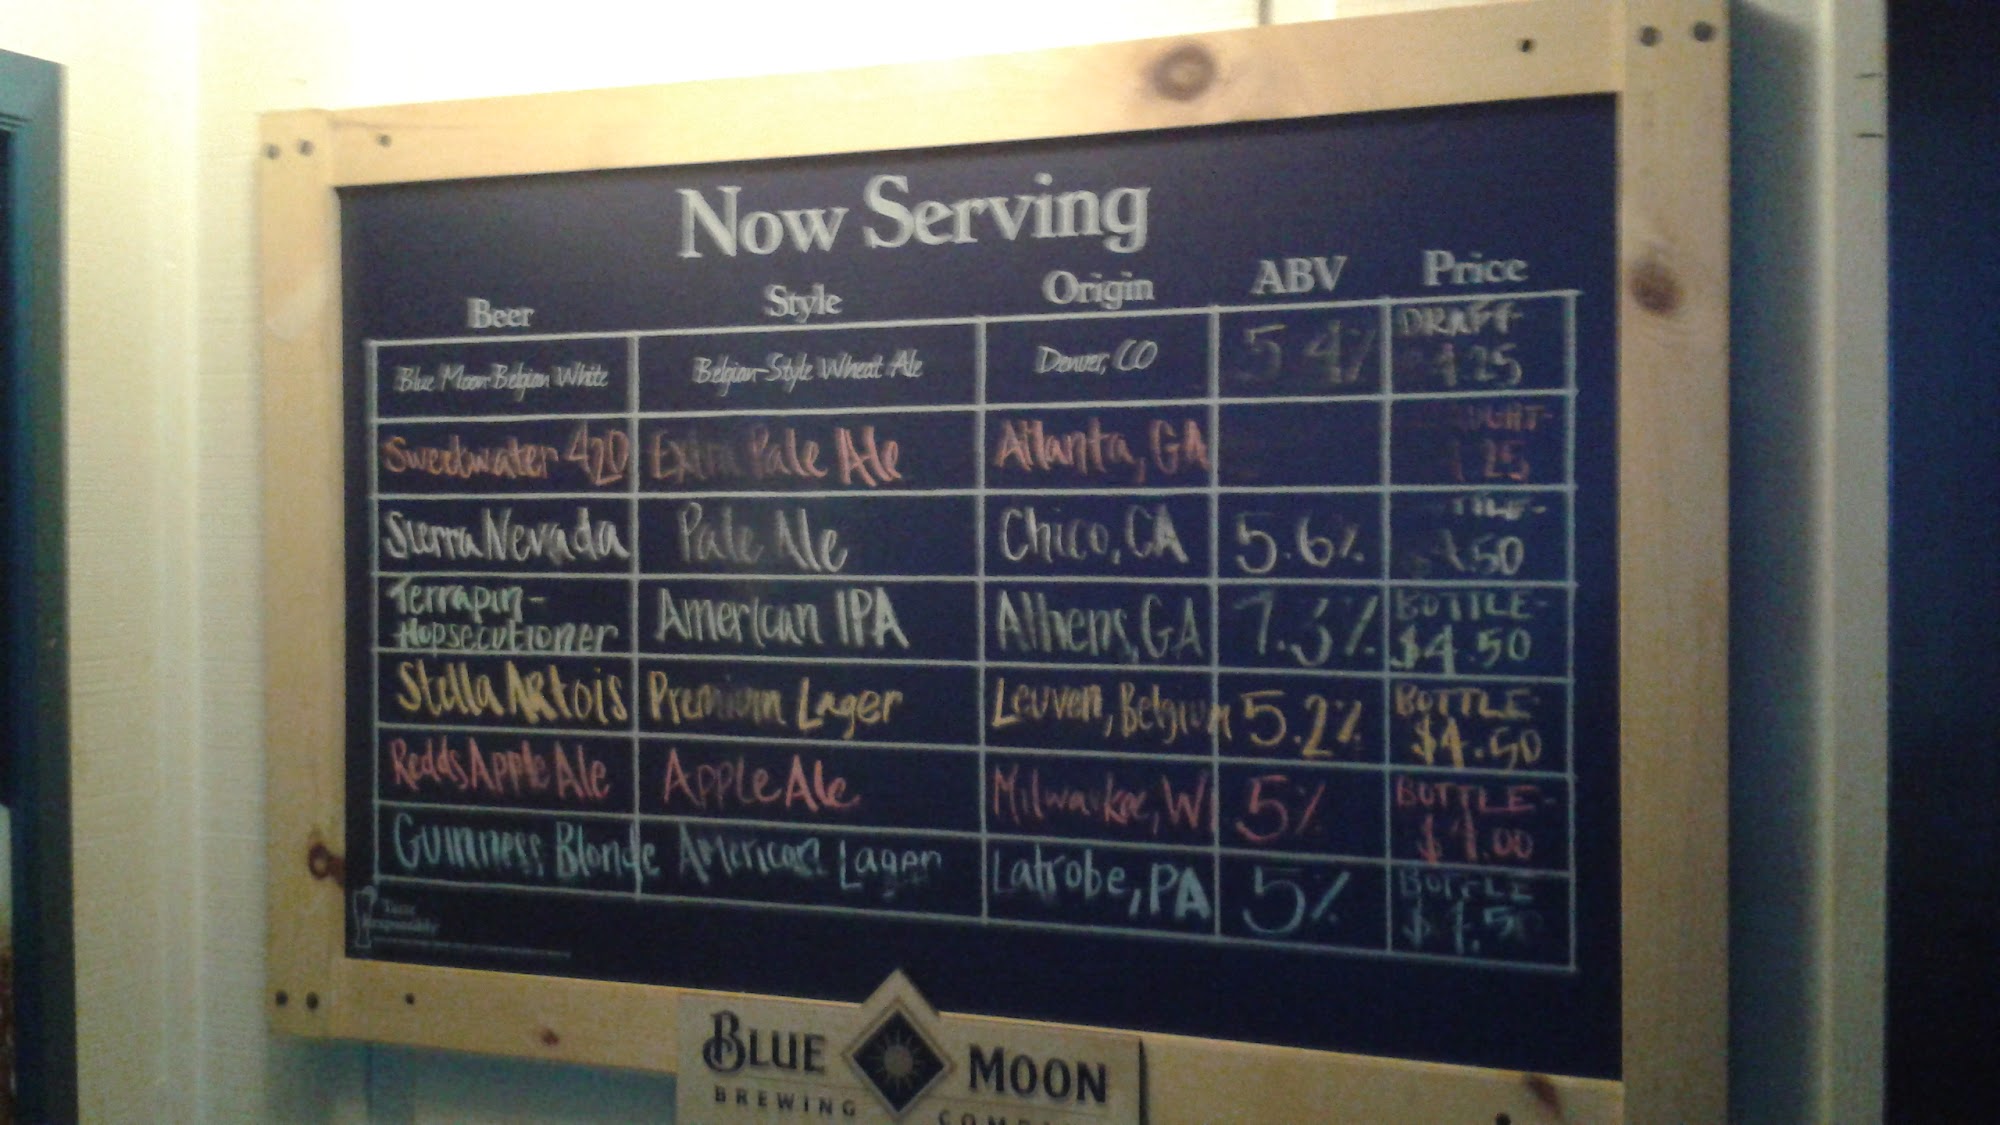 Now Serving
Beer Style Origin ABV Price
Blue Moon Belgian White Belgian-Style Wheat Ale Denver, CO 5.4% DRAFT-
.25
Sweetwater 420 Extra Pale Ale Atlanta, GA
25
Sierra Nevada Pale Ale Chico, CA 5.6%
.50
Terrapin- American IPA Athens, GA 7.3% BOTTLE-
Hopsecutioner $4.50
Stella Artois Premium Lager Leuven, Belgium 5.2% BOTTLE-
$4.50
Redds Apple Ale Apple Ale Milwaukee, WI 5% BOTTLE-
$4.00
Guinness Blonde American Lager Latrobe, PA 5% BOTTLE
$4.50
Taste
Responsibly
BLUE MOON
BREWING